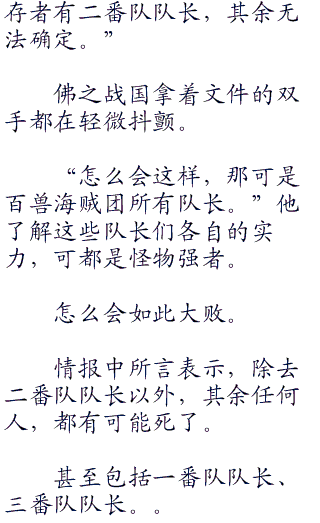 存者有二番队队长，其余无
法确定。”
佛之战国拿着文件的双
手都在轻微抖颤。
“怎么会这样，那可是
百兽海贼团所有队长。”他
了解这些队长们各自的实
力，可都是怪物强者。
怎么会如此大败。
情报中所言表示，除去
二番队队长以外，其余任何
人，都有可能死了。
甚至包括一番队队长、
三番队队长。。